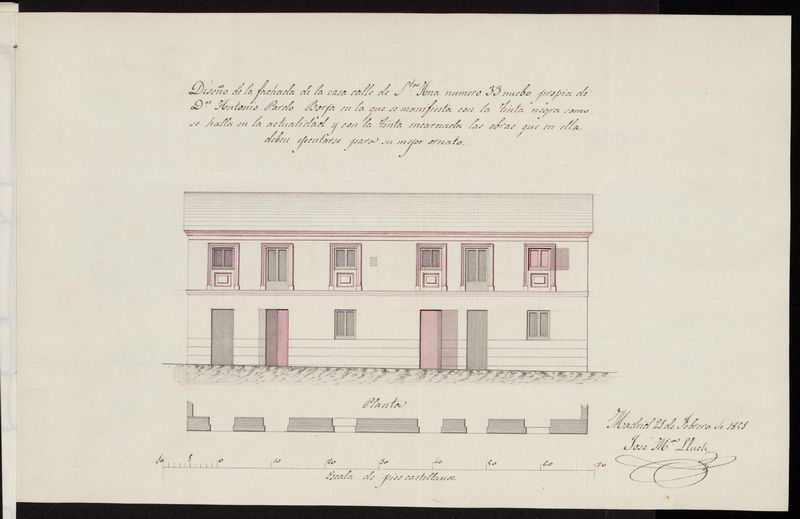 Diseño de la fachada de la casa calle de S.ta Ana numero 33 nuebo propia de
D.n Antonio Pardo Borja en la que se manifiesta con la tinta negra como
se halla en la actualidad y con la tinta encarnada las obras que en ella
deben ejecutarse para su mejor ornato.
Planta
10 5 0 10 20 30 40 50 60 70
Escala de pies castellanos.
Madrid 21 de Febrero de 1851
José M.a Lluch